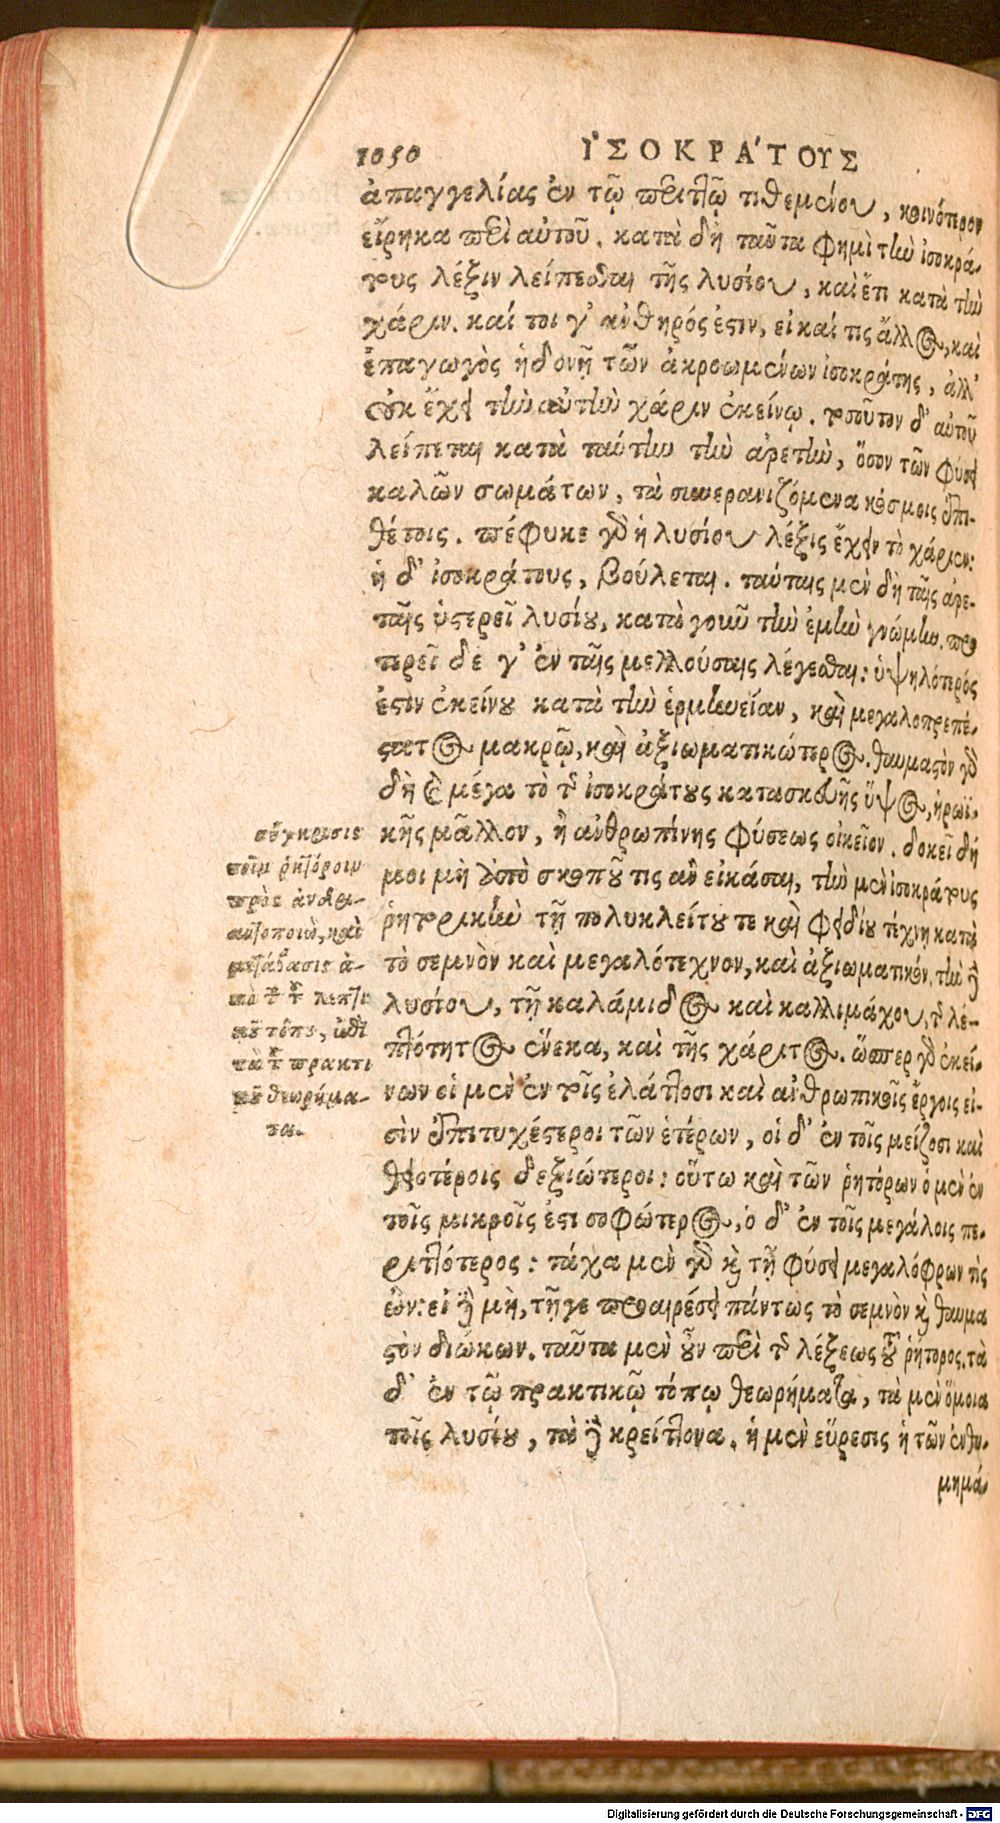 1050 ἸΣΟΚΡΑ΄ΤΟΥΣ
ἀπαγγελίας ἐν τῷ περιττῷ τιθεμένου, καινότερον
εἴρηκα περὶ αὐτοῦ. κατὰ δὴ ταῦτα φημὶ τὴν ἰσοκρά-
τους λέξιν λείπεσθαι τῆς λυσίου, καὶ ἔτι κατὰ τὴν
χάριν. καί τοι γ' ἀνθηρός ἐστιν, εἰ καί τις ἄλλος, καὶ
ἐπαγωγὸς ἡδονῇ τῶν ἀκροωμένων ἰσοκράτης, ἀλλ'
οὐκ ἔχει τὴν αὐτὴν χάριν ἐκείνῳ. τοσοῦτον δ' αὐτοῦ
λείπεται κατὰ ταύτην τὴν ἀρετὴν, ὅσον τῶν φύσει
καλῶν σωμάτων, τὰ συνερανιζόμενα κόσμοις ἐπι-
θέτοις. πέφυκε γὰρ ἡ λυσίου λέξις ἔχειν τὸ χάριεν:
ἡ δ' ἰσοκράτους, βούλεται. ταύταις μὲν δὴ ταῖς ἀρε-
ταῖς ὑστερεῖ λυσίου, κατὰ γοῦν τὴν ἐμὴν γνώμην. προ
τερεῖ δέ γ' ἐν ταῖς μελλούσαις λέγεσθαι: ὑψηλότερός
ἐστιν ἐκείνου κατὰ τὴν ἑρμηνείαν, καὶ μεγαλοπρεπέ-
στατος μακρῷ, καὶ ἀξιωματικώτερος. θαυμαστὸν γὰρ
δὴ καὶ μέγα τὸ τῆς ἰσοκράτους κατασκευῆς ὕψος, ἡρωϊ-
κῆς μᾶλλον, ἢ ἀνθρωπίνης φύσεως οἰκεῖον. δοκεῖ δή
μοι μὴ ἀπὸ σκοποῦ τις ἂν εἰκάσαι, τὴν μὲν ἰσοκράτους
ῥητορικὴν τῇ πολυκλείτου τε καὶ φειδίου τέχνῃ κατὰ
τὸ σεμνὸν καὶ μεγαλότεχνον, καὶ ἀξιωματικόν. τὴν δὲ
λυσίου, τῇ καλάμιδος καὶ καλλιμάχου, τῆς λε-
πτότητος ἕνεκα, καὶ τῆς χάριτος. ὥσπερ γὰρ ἐκεί-
νων οἱ μὲν ἐν τοῖς ἐλάττοσι καὶ ἀνθρωπικοῖς ἔργοις εἰ-
σὶν ἐπιτυχέστεροι τῶν ἑτέρων, οἱ δ' ἐν τοῖς μείζοσι καὶ
θειοτέροις δεξιώτεροι: οὕτω καὶ τῶν ῥητόρων ὁ μὲν ἐν
τοῖς μικροῖς ἐστι σοφώτερος, ὁ δ' ἐν τοῖς μεγάλοις πε-
ριττότερος: τάχα μὲν γὰρ καὶ τῇ φύσει μεγαλόφρων τὶς
ἐών: εἰ δὲ μὴ, τῇ γε προαιρέσει πάντως τὸ σεμνὸν καὶ θαυμα
στὸν διώκων. ταῦτα μὲν οὖν περὶ τῆς λέξεως τοῦ ῥήτορος. τὰ
δ' ἐν τῷ πρακτικῷ τόπῳ θεωρήματα, τὰ μὲν ὅμοια
τοῖς λυσίου, τὰ δὲ κρείττονα. ἡ μὲν εὕρεσις ἡ τῶν ἐνθυ-
μημά-
σύγκρισις
τοῖν ῥητόροιν
πρὸς ἀνδρι-
αντοποιὼ, καὶ
μετάβασις ἀ-
πὸ τοῦ τῆς λεκτι
κοῦ τόπου, ἐπὶ
τὰ τοῦ πρακτι
κοῦ θεωρήμα-
τα.
Digitalisierung gefördert durch die Deutsche Forschungsgemeinschaft - DFG